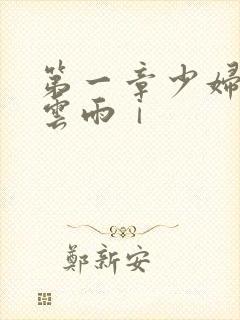 第一章少婦
雲雨｜
鄭新安